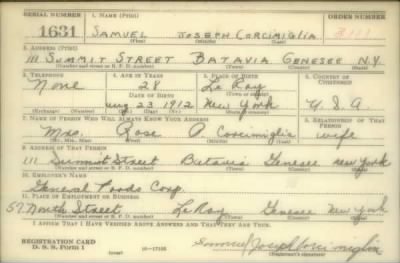 SERIAL NUMBER 1. NAME (Print) ORDER NUMBER
1631 SAMUEL JOSEPH CORCIMIGLIA
(First) (Middle) (Last)
2. ADDRESS (Print)
111 SUMMIT STREET BATAVIA GENESEE N.Y.
(Number and street or R. F. D. number) (Town) (County) (State)
3. TELEPHONE 4. AGE IN YEARS 5. PLACE OF BIRTH 6. COUNTRY OF CITIZENSHIP
None 28 Le Roy
DATE OF BIRTH (Town or county)
Aug 23 1912 New York U.S.A.
(Exchange) (Number) (Mo.) (Day) (Yr.) (State or country)
7. NAME OF PERSON WHO WILL ALWAYS KNOW YOUR ADDRESS 8. RELATIONSHIP OF THAT PERSON
Mrs. Rose A Corcimiglia wife
(Mr., Mrs., Miss) (First) (Middle) (Last)
9. ADDRESS OF THAT PERSON
111 Summit Street Batavia Genesee New York
(Number and street or R. F. D. number) (Town) (County) (State)
10. EMPLOYER'S NAME
General Foods Corp.
11. PLACE OF EMPLOYMENT OR BUSINESS
57 North Street LeRoy Genesee New York
(Number and street or R. F. D. number) (Town) (County) (State)
I AFFIRM THAT I HAVE VERIFIED ABOVE ANSWERS AND THAT THEY ARE TRUE.
REGISTRATION CARD
D. S. S. Form 1 16—17105 Samuel Joseph Corcimiglia
(Registrant's signature)